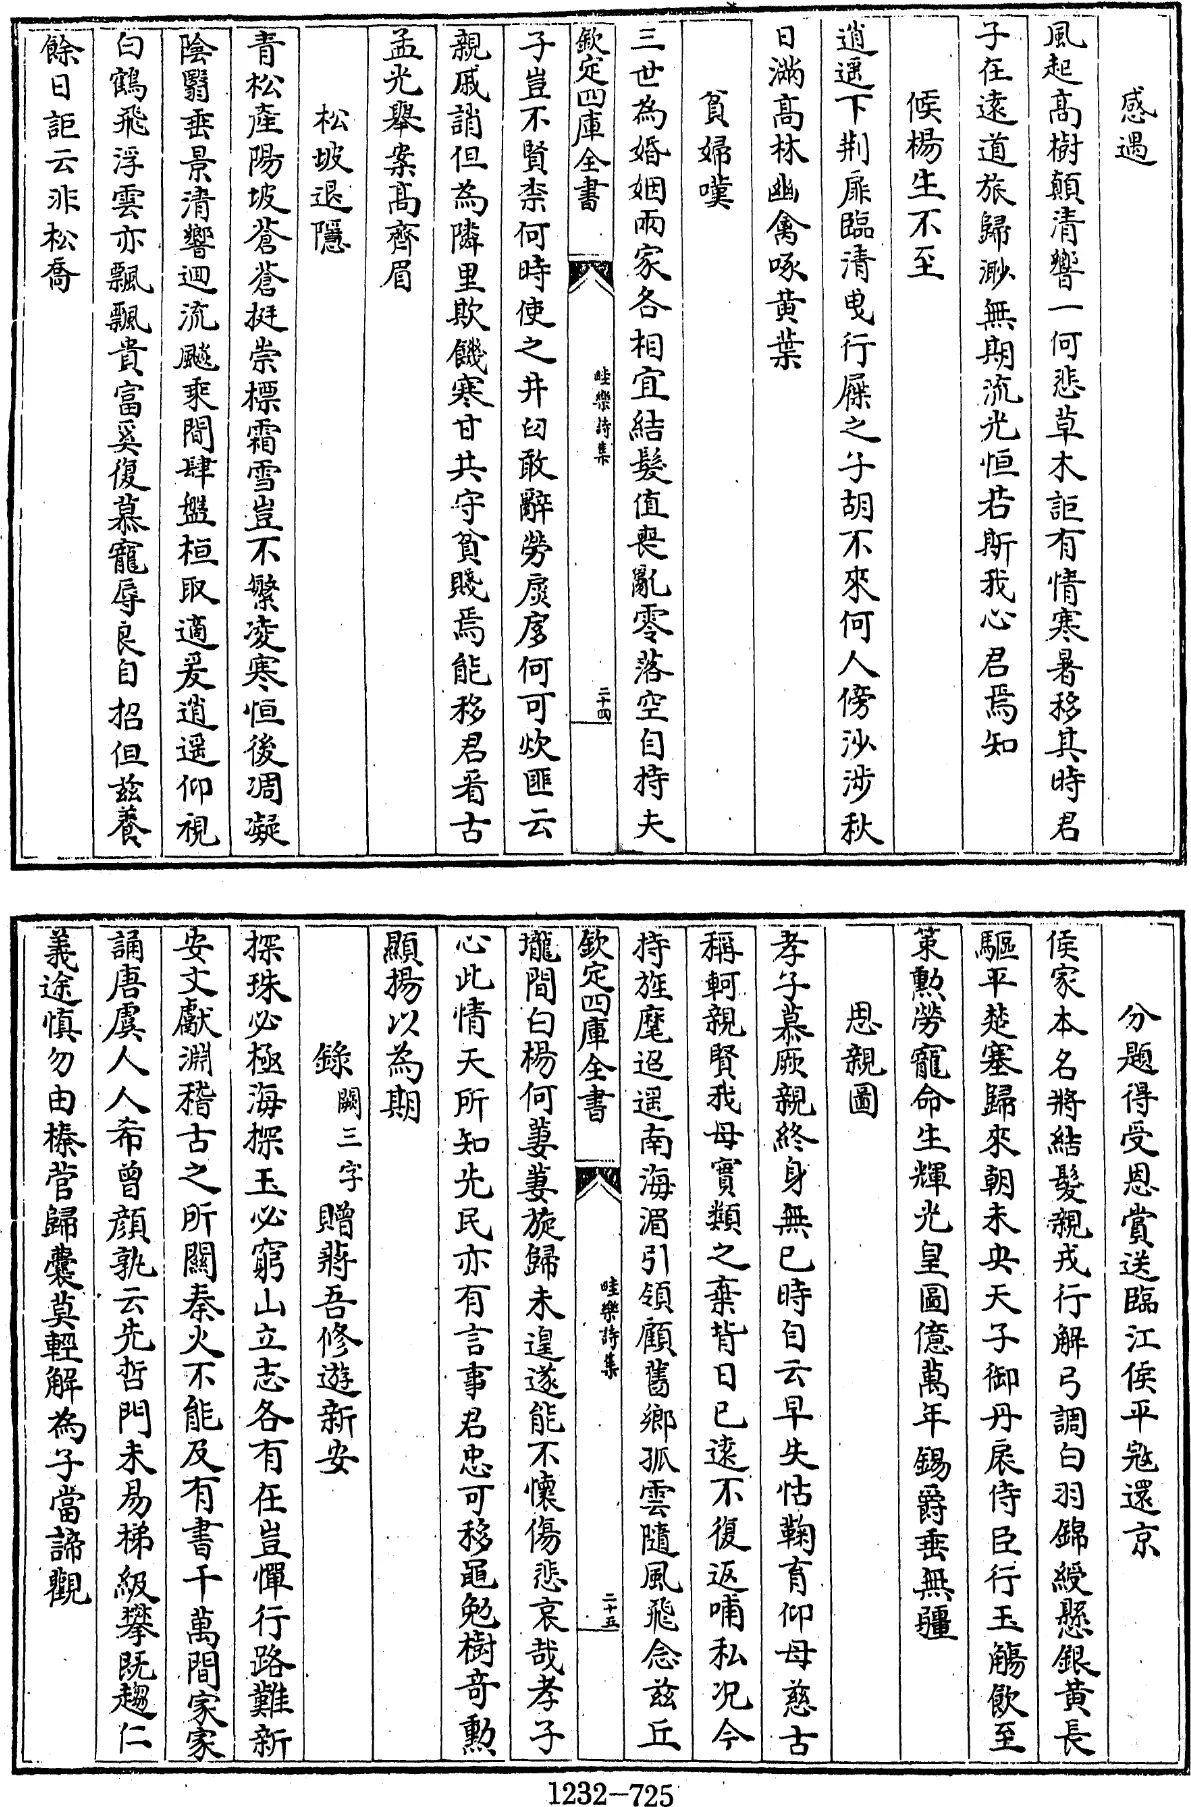 感遇
風起髙樹顛清響一何悲草木詎有情寒暑移其時君
子在逺道旅歸渺無期流光恒若斯我心君焉知
候楊生不至
逍遥下荆扉臨清曵行屧之子胡不來何人傍沙渉秋
日滿髙林幽禽啄黄葉
貧婦嘆
三世為婚姻兩家各相宜結髮值喪亂零落空自持夫
欽定四庫全書
畦樂詩集
二十四
子豈不賢柰何時使之井臼敢辭勞扊扅何可炊匪云
親戚誚但為隣里欺饑寒甘共守貧賤焉能移君看古
孟光舉案髙齊眉
松坡退隱
青松産陽坡蒼蒼挺崇標霜雪豈不繁凌寒恒後凋凝
陰翳垂景清響迴流飈乘間肆盤桓取適爰逍遥仰視
白鶴飛浮雲亦飄飄貴富奚復慕寵辱良自招但兹養
餘日詎云非松喬
分題得受恩賞送臨江侯平冦還京
侯家本名將結髮親戎行解弓調白羽錦綬懸銀黄長
驅平楚塞歸來朝未央天子御丹扆侍臣行玉觴飲至
策勲勞寵命生輝光皇圖億萬年錫爵垂無疆
思親圖
孝子慕厥親終身無已時自云早失怙鞠育仰母慈古
稱軻親賢我母實類之棄背日已逺不復返哺私况今
持旌麾迢遥南海湄引領顧舊鄉孤雲隨風飛念兹丘
欽定四庫全書
畦樂詩集
二十五
壠間白楊何萋萋旋歸未遑遂能不懷傷悲哀哉孝子
心此情天所知先民亦有言事君忠可移黽勉樹竒勲
顯揚以為期
錄闕三字贈蔣吾修遊新安
探珠必極海探玉必窮山立志各有在豈憚行路難新
安文獻淵稽古之所闗秦火不能及有書千萬間家家
誦唐虞人人希曾顔孰云先哲門未易梯級攀既趨仁
義途慎勿由榛菅歸囊莫輕解為子當諦觀
1232-725